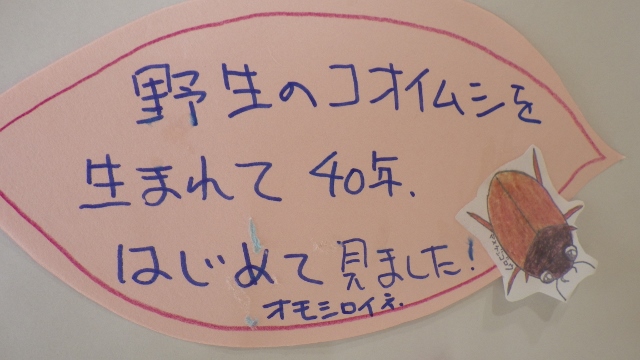 野生のコオイムシを
生まれて40年.
はじめて見ました!
オモシロイネ.